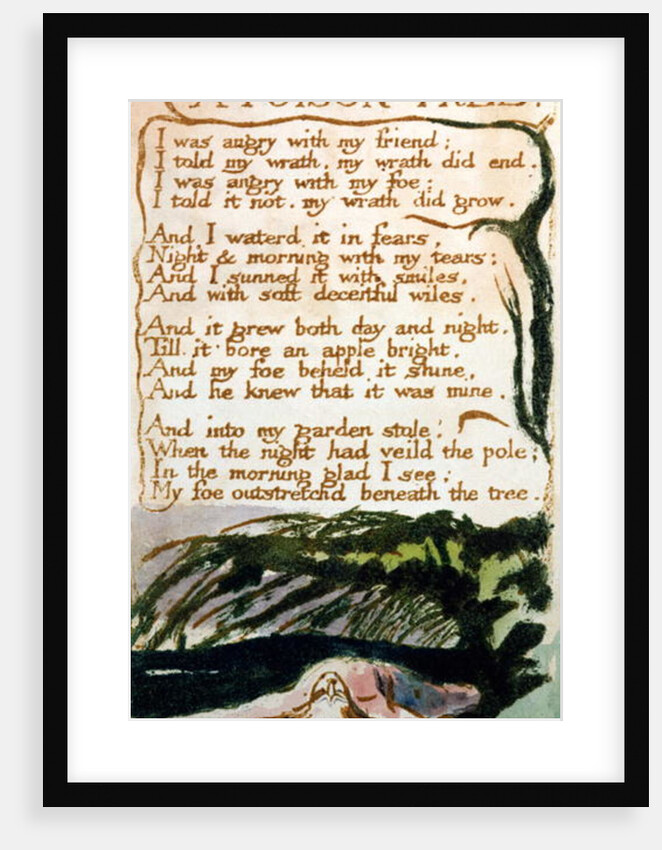 A POISON TREE.
I was angry with my friend;
I told my wrath, my wrath did end.
I was angry with my foe:
I told it not, my wrath did grow.
And I waterd it in fears,
Night & morning with my tears:
And I sunned it with smiles,
And with soft deceitful wiles.
And it grew both day and night,
Till it bore an apple bright,
And my foe beheld it shine,
And he knew that it was mine.
And into my garden stole,
When the night had veild the pole;
In the morning glad I see;
My foe outstretchd beneath the tree.